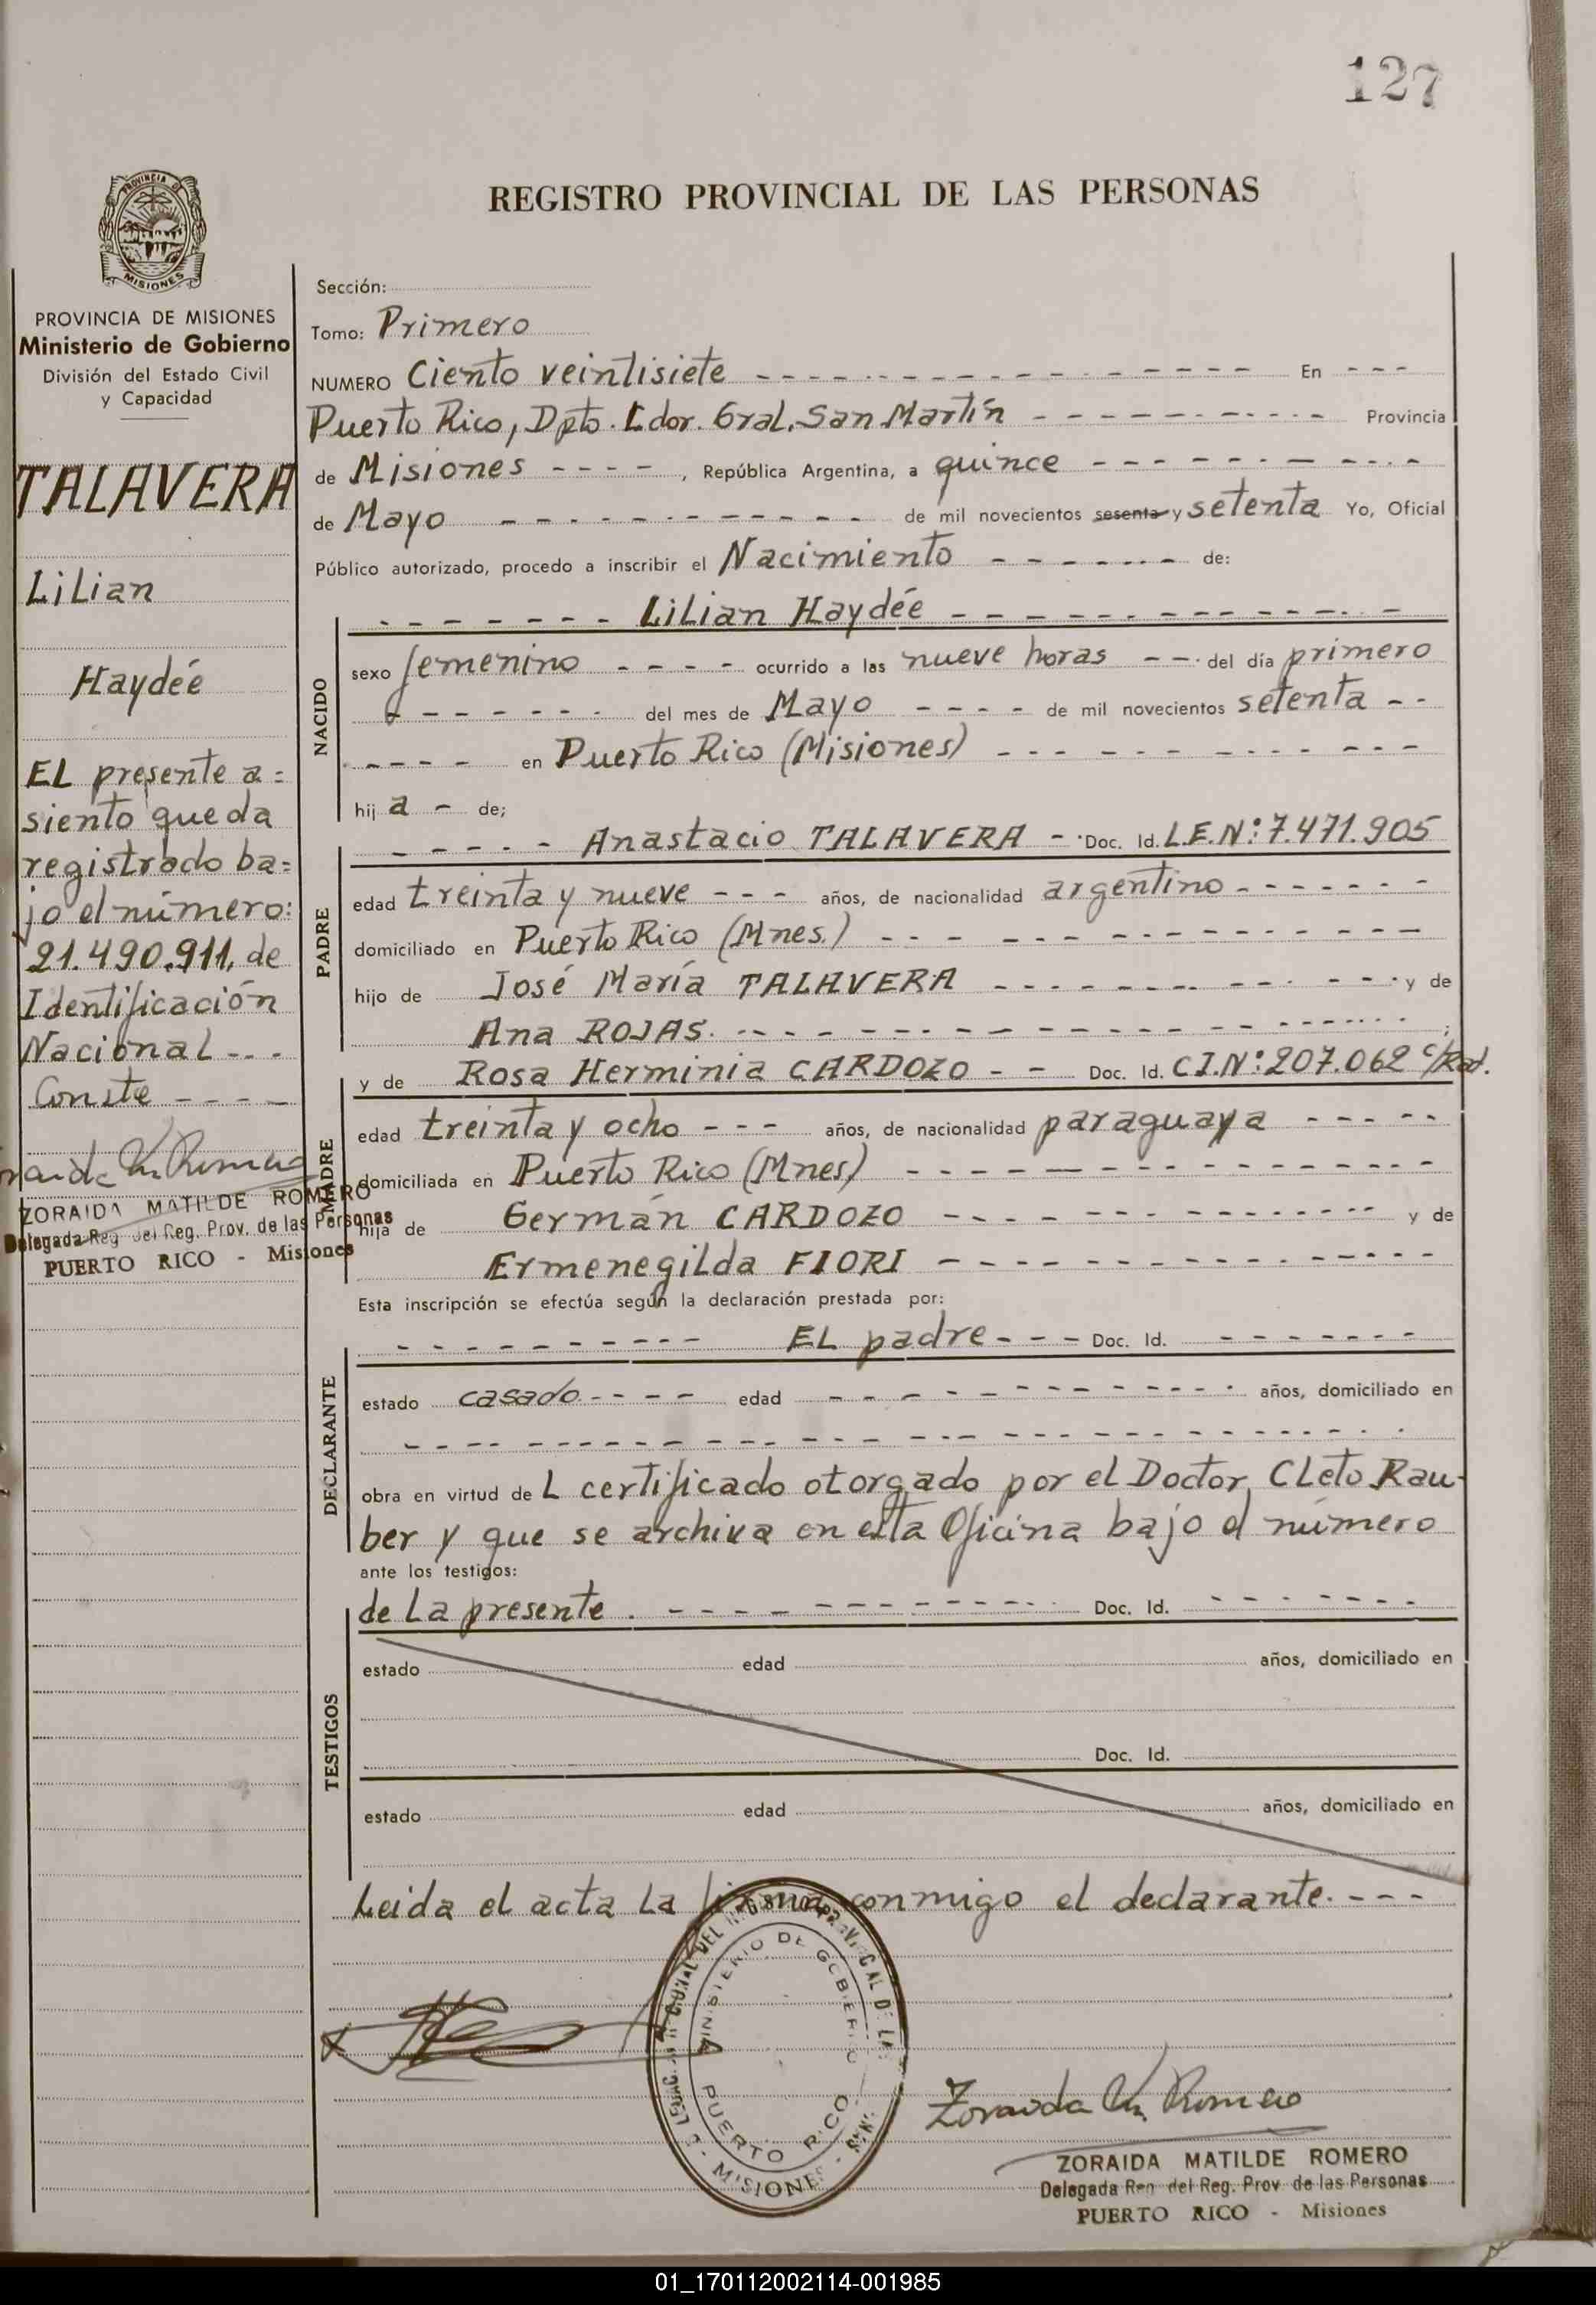 127
PROVINCIA DE
MISIONES
REGISTRO PROVINCIAL DE LAS PERSONAS
PROVINCIA DE MISIONES
Ministerio de Gobierno
División del Estado Civil
y Capacidad
TALAVERA
Lilian
Haydée
EL presente a=
siento queda
registrado ba=
jo el número:
21.490.911, de
Identificación
Nacional - - -
Conste - - - -
ZORAIDA MATILDE ROMERO
Delegada Reg del Reg. Prov. de las Personas
PUERTO RICO - Misiones
Sección:
Tomo: Primero
NUMERO Ciento veintisiete - - - En - - -
Puerto Rico, Dpto. Ldor. Gral. San Martín - - - Provincia
de Misiones - - - - , República Argentina, a quince - - -
de Mayo - - - de mil novecientos sesenta y setenta Yo, Oficial
Público autorizado, procedo a inscribir el Nacimiento - - - de:
NACIDO
- - - Lilian Haydée - - -
sexo femenino - - - - ocurrido a las nueve horas - - del día primero
- - - del mes de Mayo - - - - de mil novecientos setenta - -
- - - - en Puerto Rico (Misiones) - - -
hij a - de;
PADRE
- - - Anastacio TALAVERA - Doc. Id. L.E.Nº: 7.471.905
edad treinta y nueve - - - años, de nacionalidad argentino - - -
domiciliado en Puerto Rico (Mnes.) - - -
hijo de José María TALAVERA - - - y de
Ana ROJAS. - - - ;
MADRE
y de Rosa Herminia CARDOZO - - Doc. Id. C.I.Nº: 207.062 c/Rat.
edad treinta y ocho - - - años, de nacionalidad paraguaya - - -
domiciliada en Puerto Rico (Mnes) - - -
hija de Germán CARDOZO - - - y de
Ermenegilda FIORI - - -
Esta inscripción se efectúa según la declaración prestada por:
DECLARANTE
- - - EL padre - - - Doc. Id. - - -
estado casado - - - - edad - - - años, domiciliado en
- - -
obra en virtud de L certificado otorgado por el Doctor, CLeto Rau-
ber y que se archiva en esta Oficina bajo el número
ante los testigos:
TESTIGOS
de La presente . - - - Doc. Id. - - -
estado edad años, domiciliado en
Doc. Id.
estado edad años, domiciliado en
Leida el acta La firma conmigo el declarante. - - -
MINISTERIO DE GOBIERNO
PUERTO RICO
MISIONES
Zoraida M. Romero
ZORAIDA MATILDE ROMERO
Delegada Reg del Reg. Prov. de las Personas
PUERTO RICO - Misiones
01_170112002114-001985